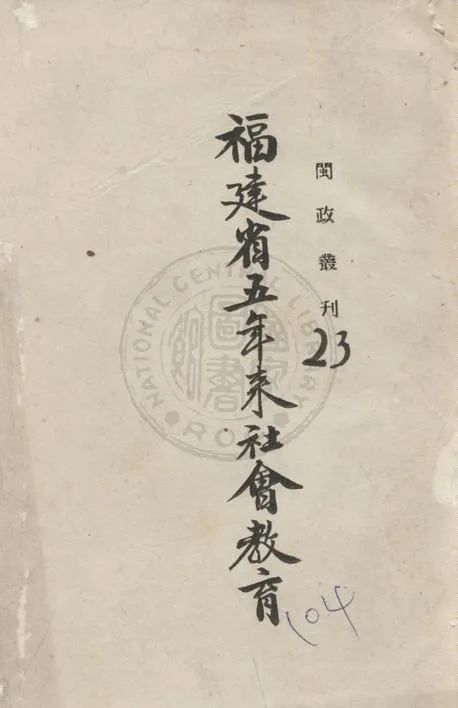 閩政叢刊
23
福建省五年来社會教育
104
NATIONAL CENTRAL LIBRARY
ROC
國家圖書館